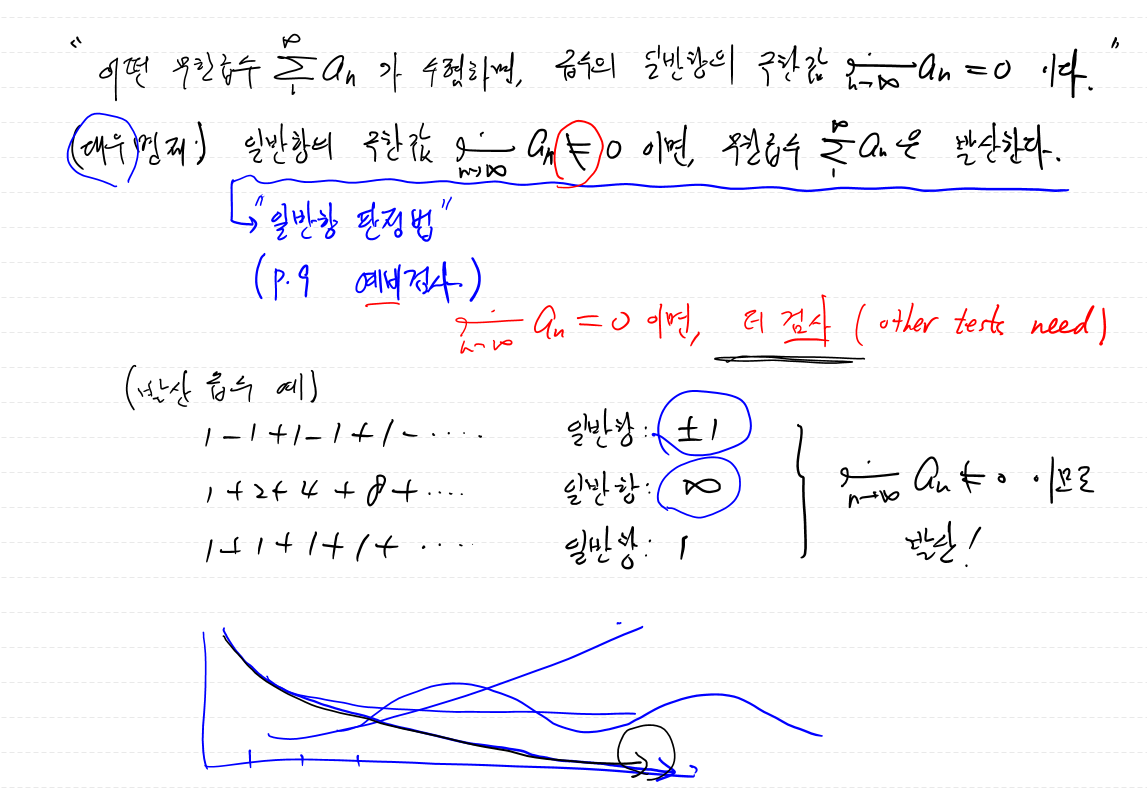 " 어떤 무한급수 ∞ Σ 1 aₙ 가 수렴하면, 급수의 일반항의 극한값 lim n→∞ aₙ = 0 이다. "
(대우명제:) 일반항의 극한값 lim n→∞ aₙ ≠ 0 이면, 무한급수 ∞ Σ 1 aₙ은 발산한다.
"일반항 판정법"
(p.9 예비검사)
lim n→∞ aₙ = 0 이면, 더 검사 (other tests need)
(발산 급수 예)
1 - 1 + 1 - 1 + 1 - ..... 일반항: ±1
1 + 2 + 4 + 8 + .... 일반항: ∞
1 + 1 + 1 + 1 + ..... 일반항: 1
lim n→∞ aₙ ≠ 0 이므로
발산!